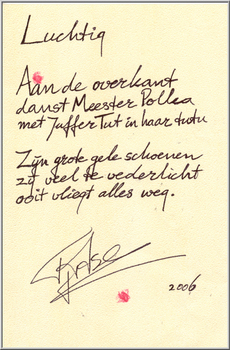 Luchtig
Aan de overkant
danst Meester Polka
met Juffer Tut in haar tutu
Zijn grote gele schoenen
zij veel te vederlicht
ooit vliegt alles weg.
2006